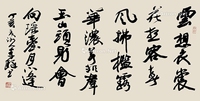 雲想衣裳
花想容春
風拂檻露
華濃若非群
玉山頭見會
向瑤臺月下逢